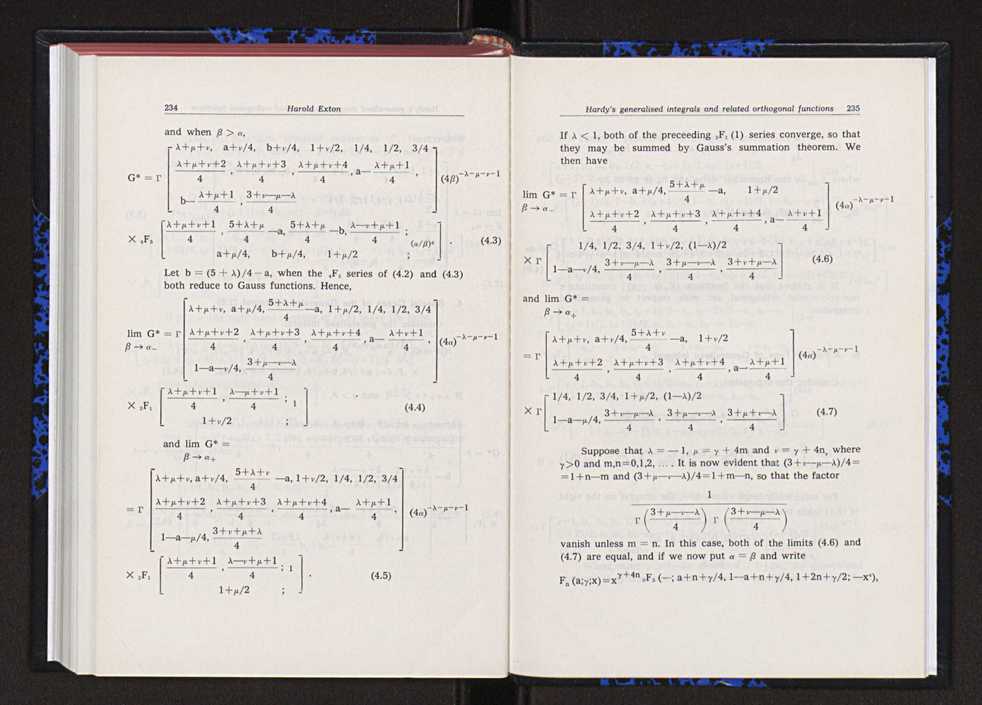 234 Harold Exton
and when β > α,
λ+μ+ν, a+ν/4, b+ν/4, 1+ν/2, 1/4, 1/2, 3/4
G* = Γ λ+μ+ν+2 / 4 , λ+μ+ν+3 / 4 , λ+μ+ν+4 / 4 , a— λ+μ+1 / 4 , (4β)^—λ—μ—ν—1
b— λ+μ+1 / 4 , 3+ν—μ—λ / 4
× ₄F₃ [ λ+μ+ν+1 / 4 , 5+λ+μ / 4 —a, 5+λ+μ / 4 —b, λ—ν+μ+1 / 4 ; (α/β)⁴ ] . (4.3)
a+μ/4, b+μ/4, 1+μ/2 ;
Let b = (5 + λ)/4 — a, when the ₄F₃ series of (4.2) and (4.3)
both reduce to Gauss functions. Hence,
λ+μ+ν, a+μ/4, 5+λ+μ / 4 —a, 1+μ/2, 1/4, 1/2, 3/4
lim G* = Γ λ+μ+ν+2 / 4 , λ+μ+ν+3 / 4 , λ+μ+ν+4 / 4 , a— λ+ν+1 / 4 , (4α)^—λ—μ—ν—1
β → α₋
1—a—ν/4, 3+μ—ν—λ / 4
× ₂F₁ [ λ+μ+ν+1 / 4 , λ—μ+ν+1 / 4 ; 1 ] (4.4)
1+ν/2 ;
and lim G* =
β → α₊
λ+μ+ν, a+ν/4, 5+λ+ν / 4 —a, 1+ν/2, 1/4, 1/2, 3/4
= Γ λ+μ+ν+2 / 4 , λ+μ+ν+3 / 4 , λ+μ+ν+4 / 4 , a— λ+μ+1 / 4 , (4α)^—λ—μ—ν—1
1—a—μ/4, 3+ν+μ+λ / 4
× ₂F₁ [ λ+μ+ν+1 / 4 , λ—ν+μ+1 / 4 ; 1 ] . (4.5)
1+μ/2 ;
Hardy's generalised integrals and related orthogonal functions 235
If λ < 1, both of the preceeding ₂F₁ (1) series converge, so that
they may be summed by Gauss's summation theorem. We
then have
lim G* = Γ [ λ+μ+ν, a+μ/4, 5+λ+μ / 4 —a, 1+μ/2
β → α₋
λ+μ+ν+2 / 4 , λ+μ+ν+3 / 4 , λ+μ+ν+4 / 4 , a— λ+ν+1 / 4 ] (4α)^—λ—μ—ν—1
1/4, 1/2, 3/4, 1+ν/2, (1—λ)/2
× Γ [ 1—a—ν/4, 3+μ—ν—λ / 4 , 3+μ—ν—λ / 4 , 3+ν+μ—λ / 4 ] (4.6)
and lim G* =
β → α₊
λ+μ+ν, a+ν/4, 5+λ+ν / 4 —a, 1+ν/2
= Γ [ λ+μ+ν+2 / 4 , λ+μ+ν+3 / 4 , λ+μ+ν+4 / 4 , a— λ+μ+1 / 4 ] (4α)^—λ—μ—ν—1
1/4, 1/2, 3/4, 1+μ/2, (1—λ)/2
× Γ [ 1—a—μ/4, 3+ν—μ—λ / 4 , 3+μ—ν—λ / 4 , 3+μ+ν—λ / 4 ] (4.7)
Suppose that λ = — 1, μ = γ + 4m and ν = γ + 4n, where
γ>0 and m,n=0,1,2, .... It is now evident that (3+ν—μ—λ)/4=
=1+n—m and (3+μ—ν—λ)/4=1+m—n, so that the factor
1
Γ ( 3+μ—ν—λ / 4 ) Γ ( 3+ν—μ—λ / 4 )
vanish unless m = n. In this case, both of the limits (4.6) and
(4.7) are equal, and if we now put α = β and write
Fₙ (a;γ;x)=x^γ+4n ₀F₃ (—; a+n+γ/4, 1—a+n+γ/4, 1+2n+γ/2; —x⁴),